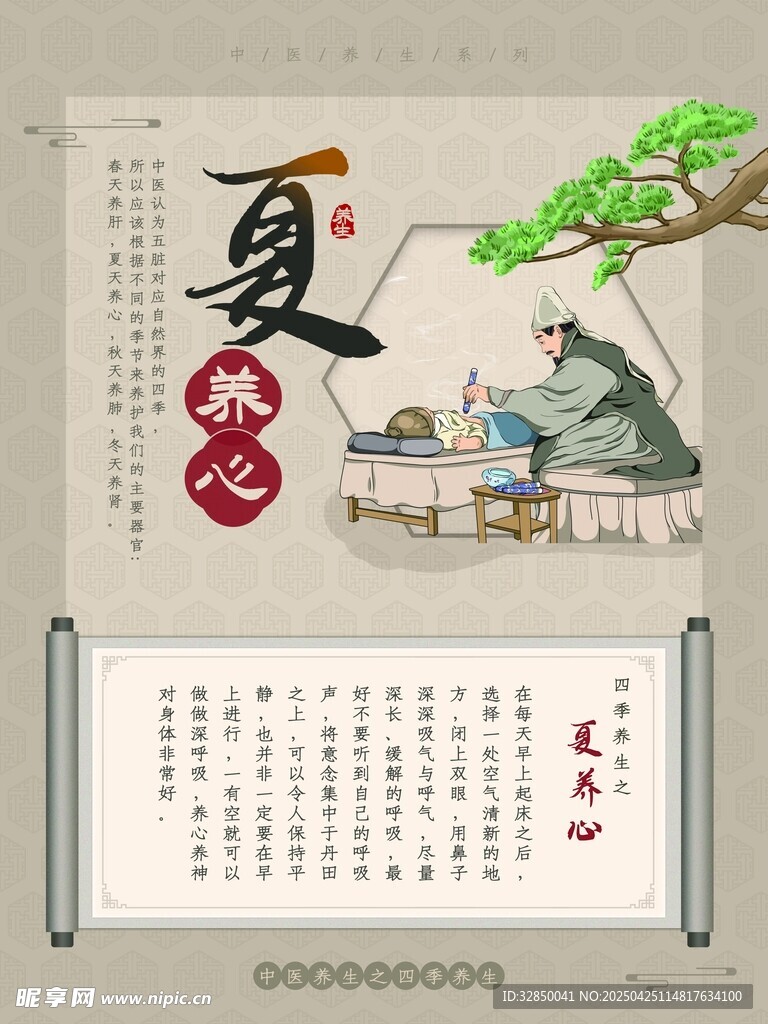 中/医/养/生/系/列
中医认为五脏对应自然界的四季，
所以应该根据不同的季节来养护我们的主要器官：
春天养肝，夏天养心，秋天养肺，冬天养肾。
夏
养生
养
心
四季养生之
夏养心
在每天早上起床之后，
选择一处空气清新的地
方，闭上双眼，用鼻子
深深吸气与呼气，尽量
深长、缓解的呼吸，最
好不要听到自己的呼吸
声，将意念集中于丹田
之上，可以令人保持平
静，也并非一定要在早
上进行，一有空就可以
做做深呼吸，养心养神
对身体非常好。
中医养生之四季养生
昵享网 www.nipic.cn
ID:32850041 NO:20250425114817634100